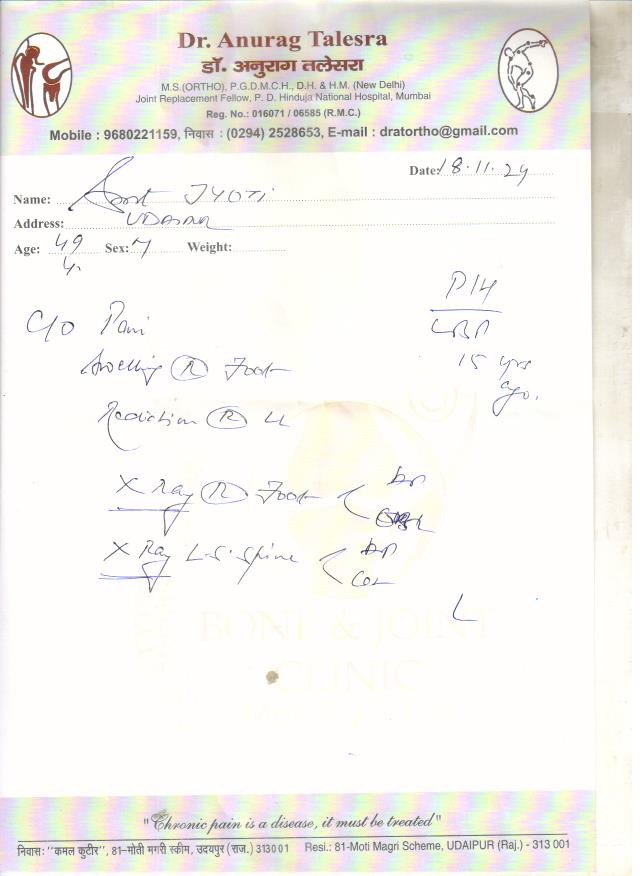 Dr. Anurag Talesra
डॉ. अनुराग तलेसरा
M.S.(ORTHO), P.G.D.M.C.H., D.H. & H.M. (New Delhi)
Joint Replacement Fellow, P. D. Hinduja National Hospital, Mumbai
Reg. No.: 016071 / 06585 (R.M.C.)
Mobile : 9680221159, निवास : (0294) 2528653, E-mail : dratortho@gmail.com
Date: 18.11.24
Name: JYOTI
Address:
Age: 49 Sex: Weight:
y.
P/H
C/O Pain LBP
Swelling R Foot 15 yrs
ago.
Radiation R LL
X Ray R Foot AP
X Ray L-S-Spine AP
BONE & JOINT
CLINIC
"Chronic pain is a disease, it must be treated"
निवास: "कमल कुटीर", 81-मोती मगरी स्कीम, उदयपुर (राज.) 313001 Resi.: 81-Moti Magri Scheme, UDAIPUR (Raj.) - 313 001